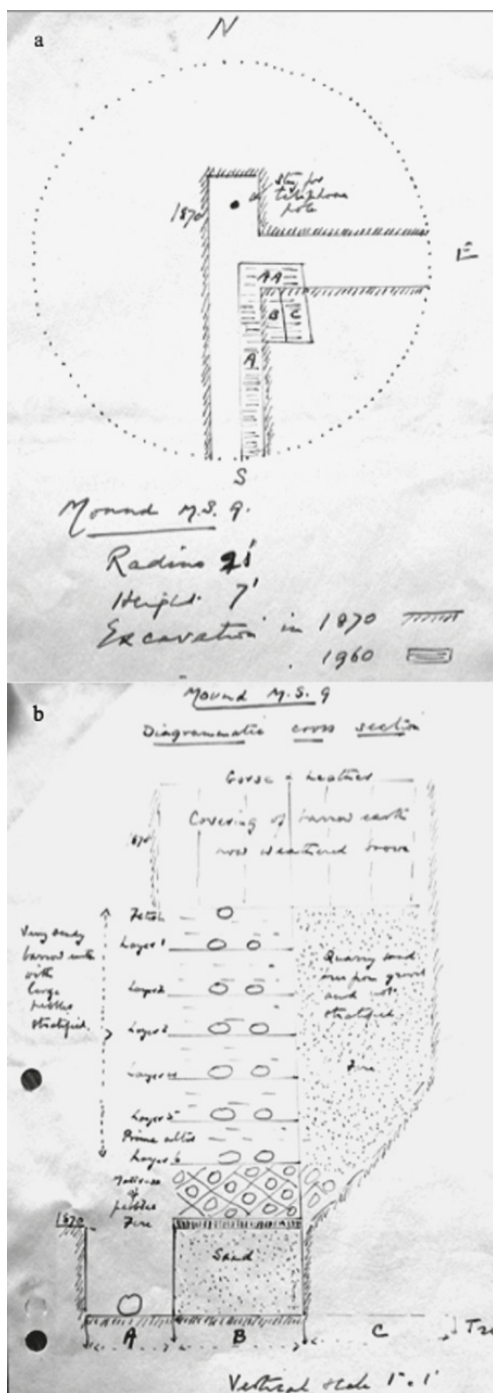 a
N
1870
Stay for
telephone
pole
E
AA
B C
A
S
Mound M.S. 9.
Radius 21'
Height 7'
Excavation in 1870
1960
b
Mound M.S. 9
Diagrammatic cross section
Gorse & heather
Covering of barrow earth
now weathered brown
1870
Very sandy
barrow earth
with
large
pebbles
stratified
Layer 1
Layer 2
Layer 3
Layer 4
Layer 5
Layer 6
Quarry sand
and not
stratified
Fire
of
pebbles
Fire
1870
Sand
A B C
Vertical scale 1" . 1'